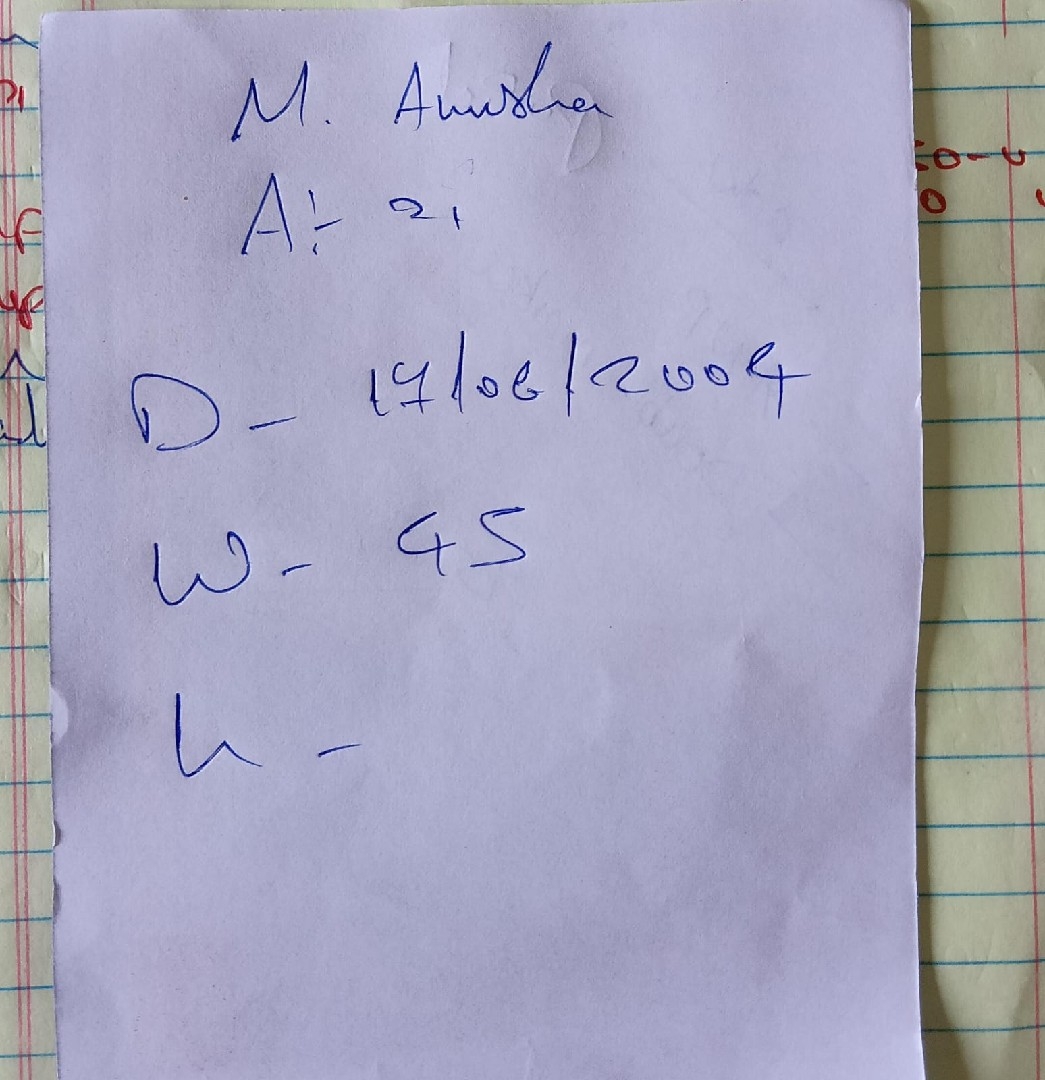 M. Anusha
A:- 21
D - 17/06/2004
W - 45
h -